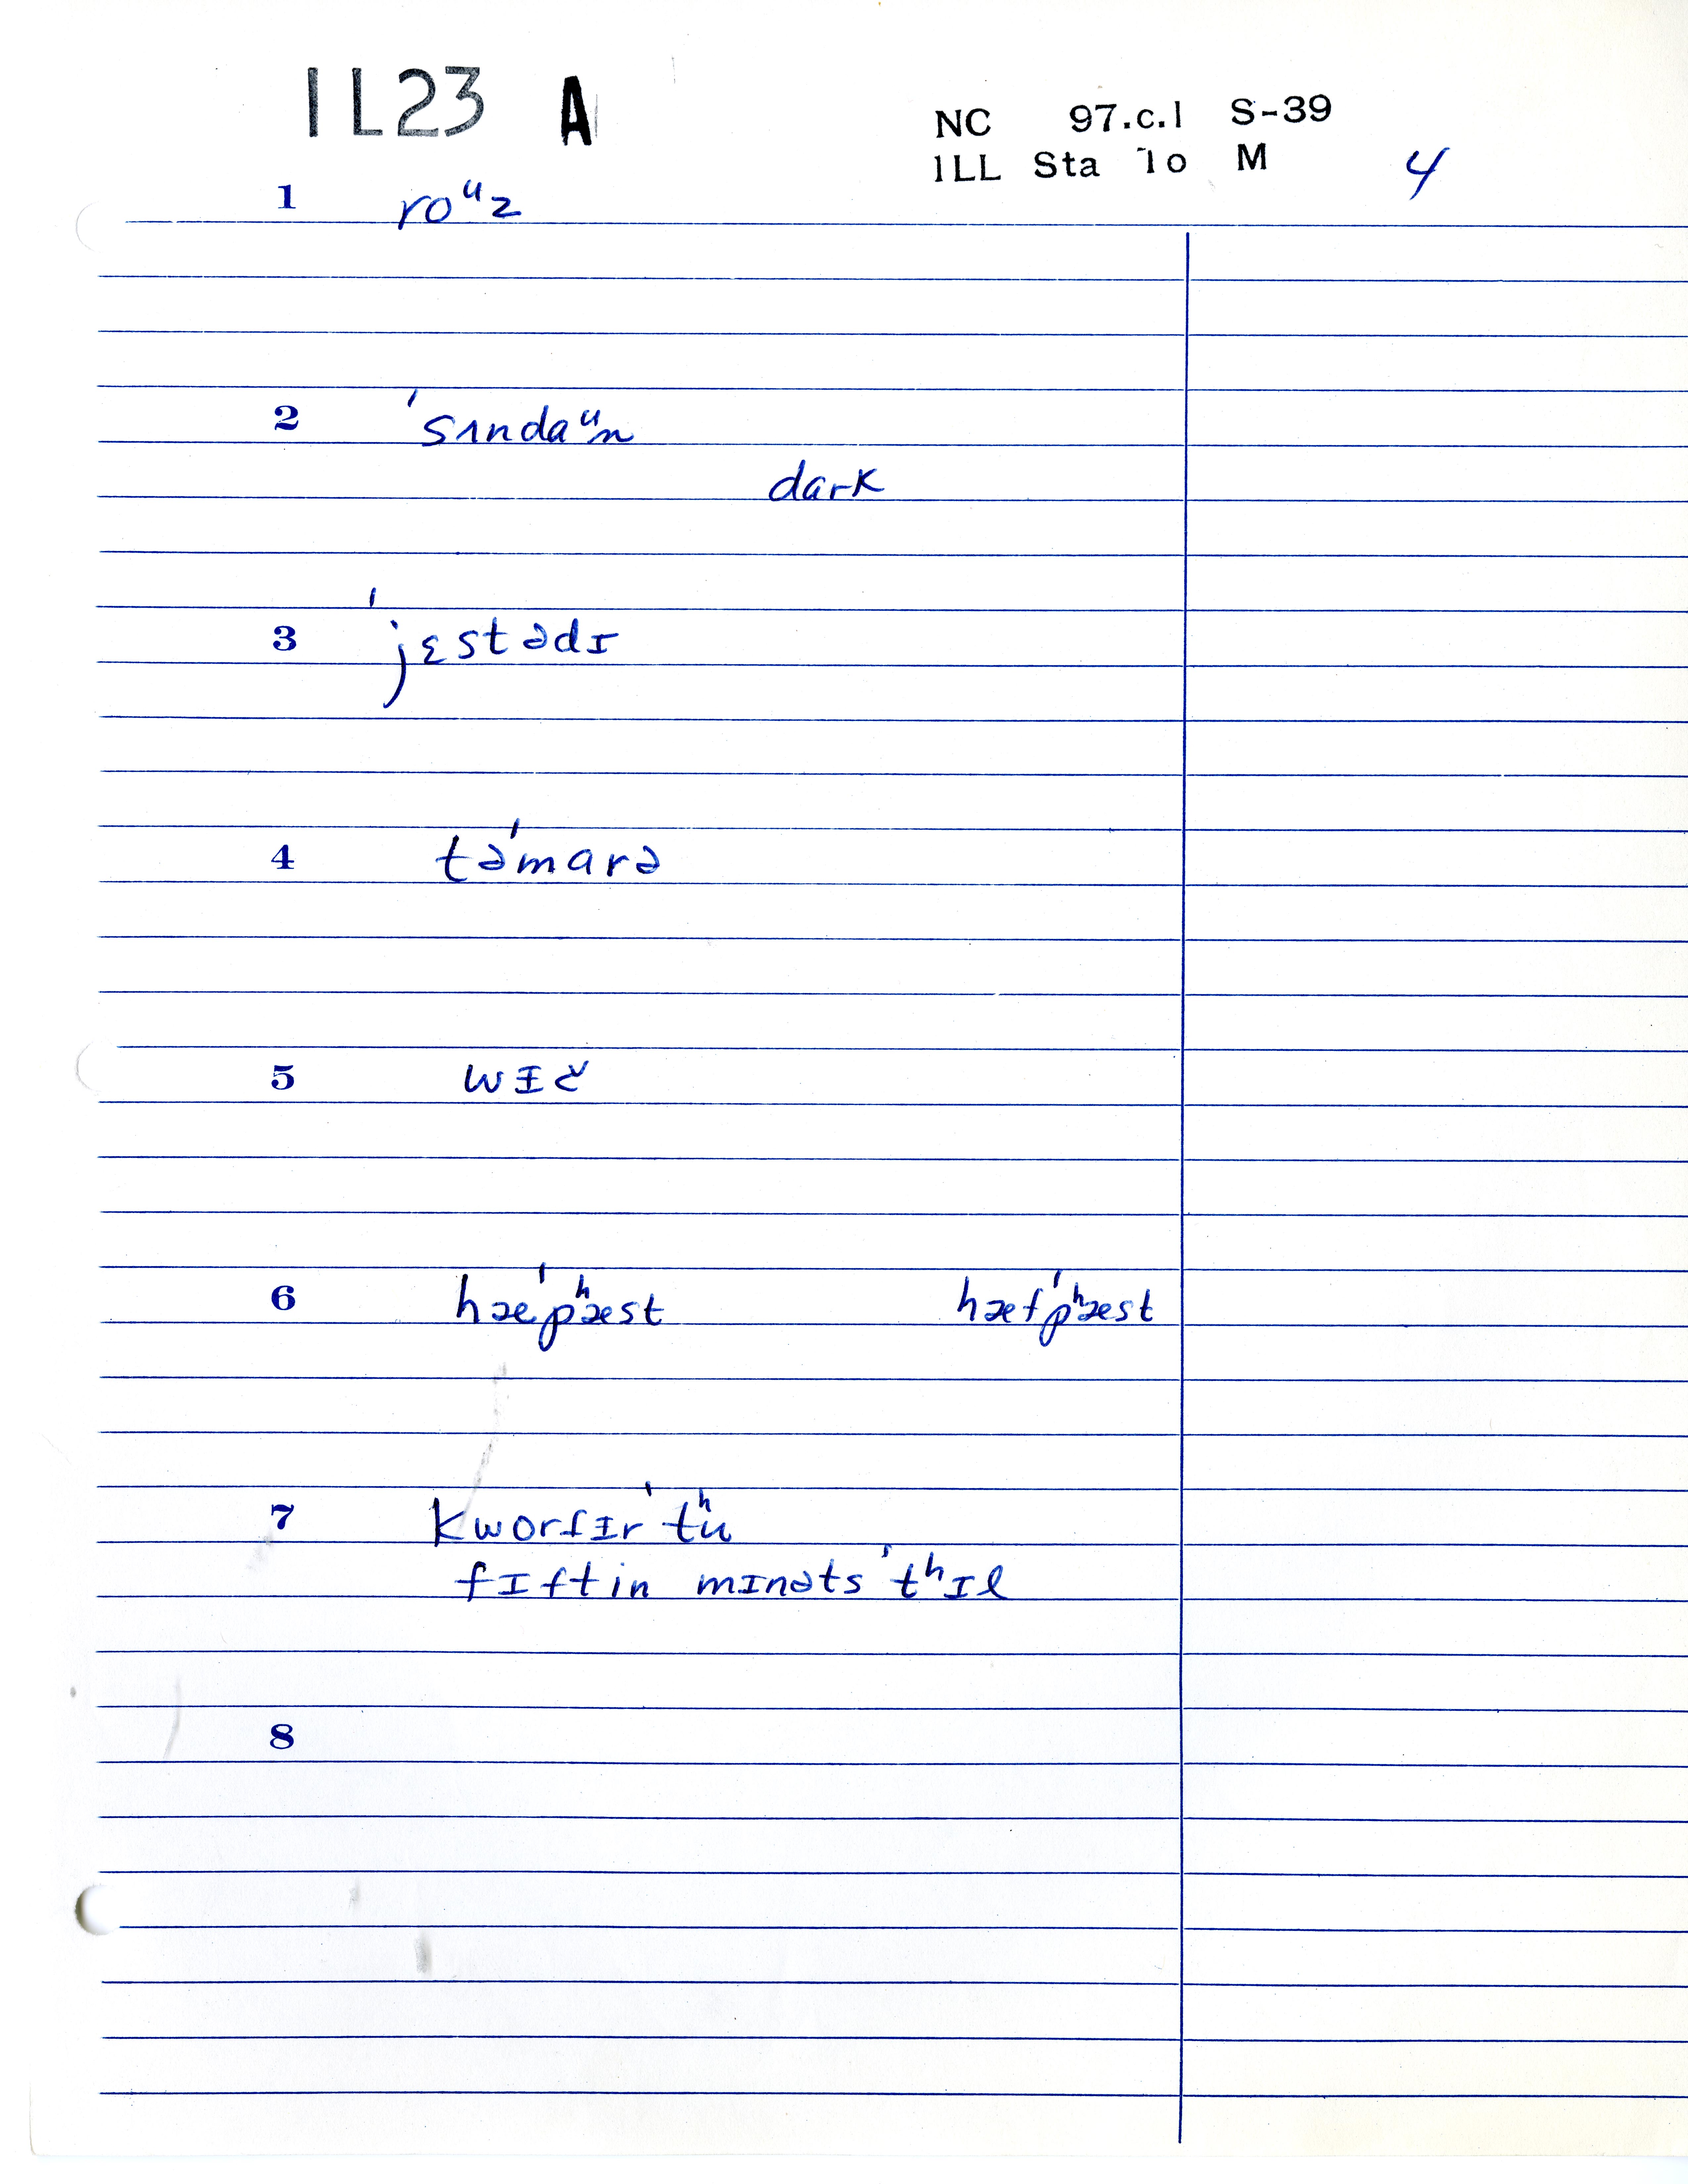 IL23 A
NC 97.c.1 S-39
ILL Sta To M 4
1 roᵘz
2 'sʌndaᵘn
dark
3 'jɛstədɪ
4 tə'marə
5 wɪč
6 hæ'pʰæst hæf'pʰæst
7 kworfɪr 'tʰu
fɪftin mɪnəts 'tʰɪl
8